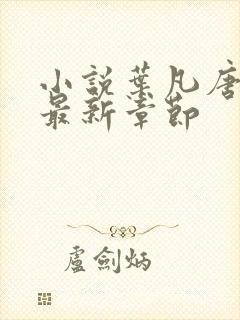 小說葉凡唐
最新章節
盧劍炳